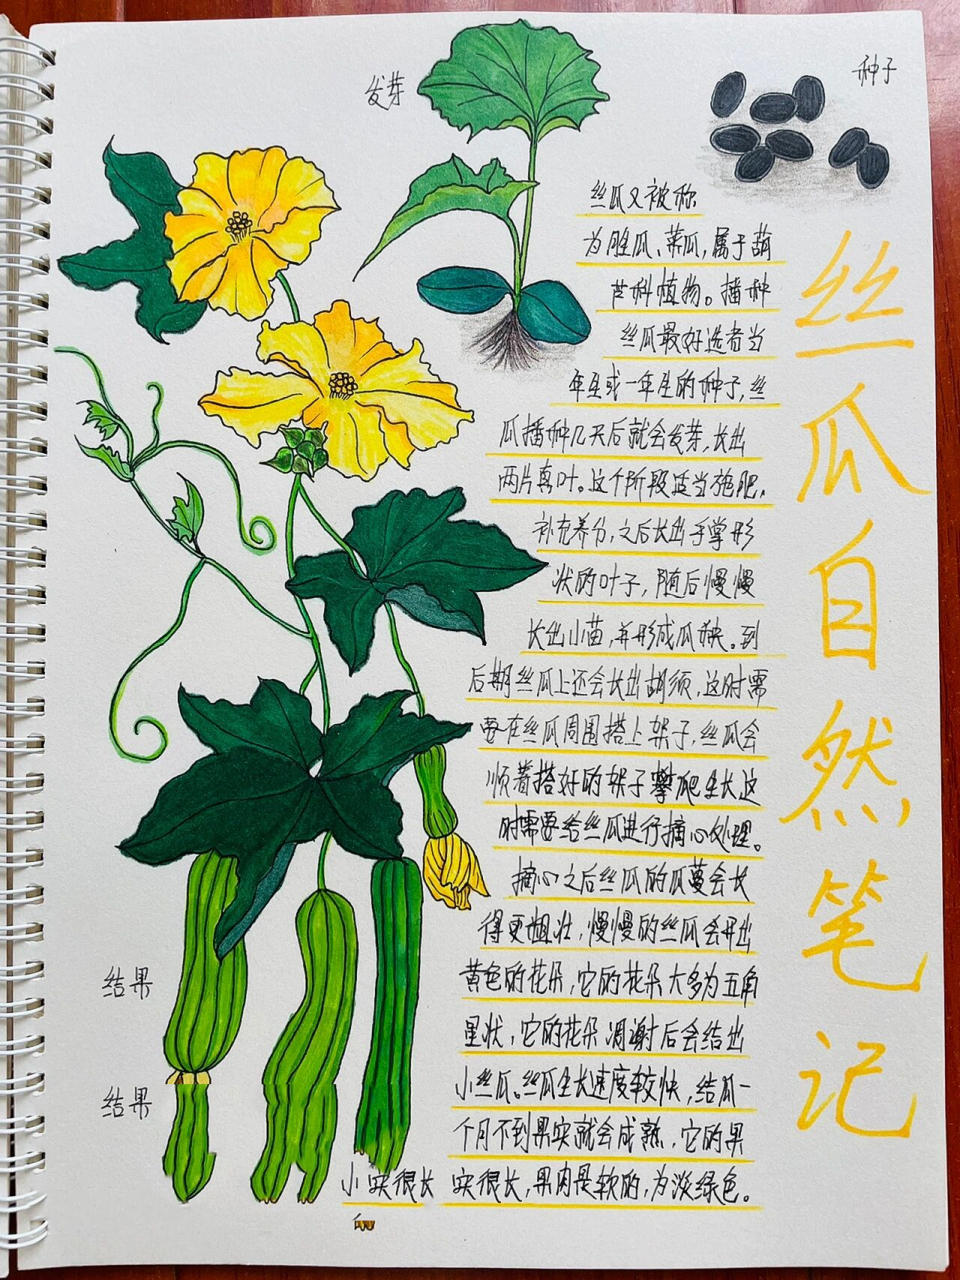 发芽
种子
丝瓜自然笔记
丝瓜又被称
为胜瓜、菜瓜,属于葫
芦科植物。播种
丝瓜最好选者当
年生或一年生的种子,丝
瓜播种几天后就会发芽,长出
两片真叶。这个阶段适当施肥,
补充养分,之后长出手掌形
状的叶子,随后慢慢
长出小苗,并形成瓜秧。到
后期丝瓜上还会长出胡须,这时需
要在丝瓜周围搭上架子,丝瓜会
顺着搭好的架子攀爬生长这
时需要给丝瓜进行摘心处理。
摘心之后丝瓜的瓜蔓会长
得更粗壮,慢慢的丝瓜会开出
黄色的花朵,它的花朵大多为五角
星状,它的花朵凋谢后会结出
小丝瓜。丝瓜生长速度较快,结瓜一
个月不到果实就会成熟,它的果
小实很长 实很长,果肉是软的,为淡绿色。
结果
结果